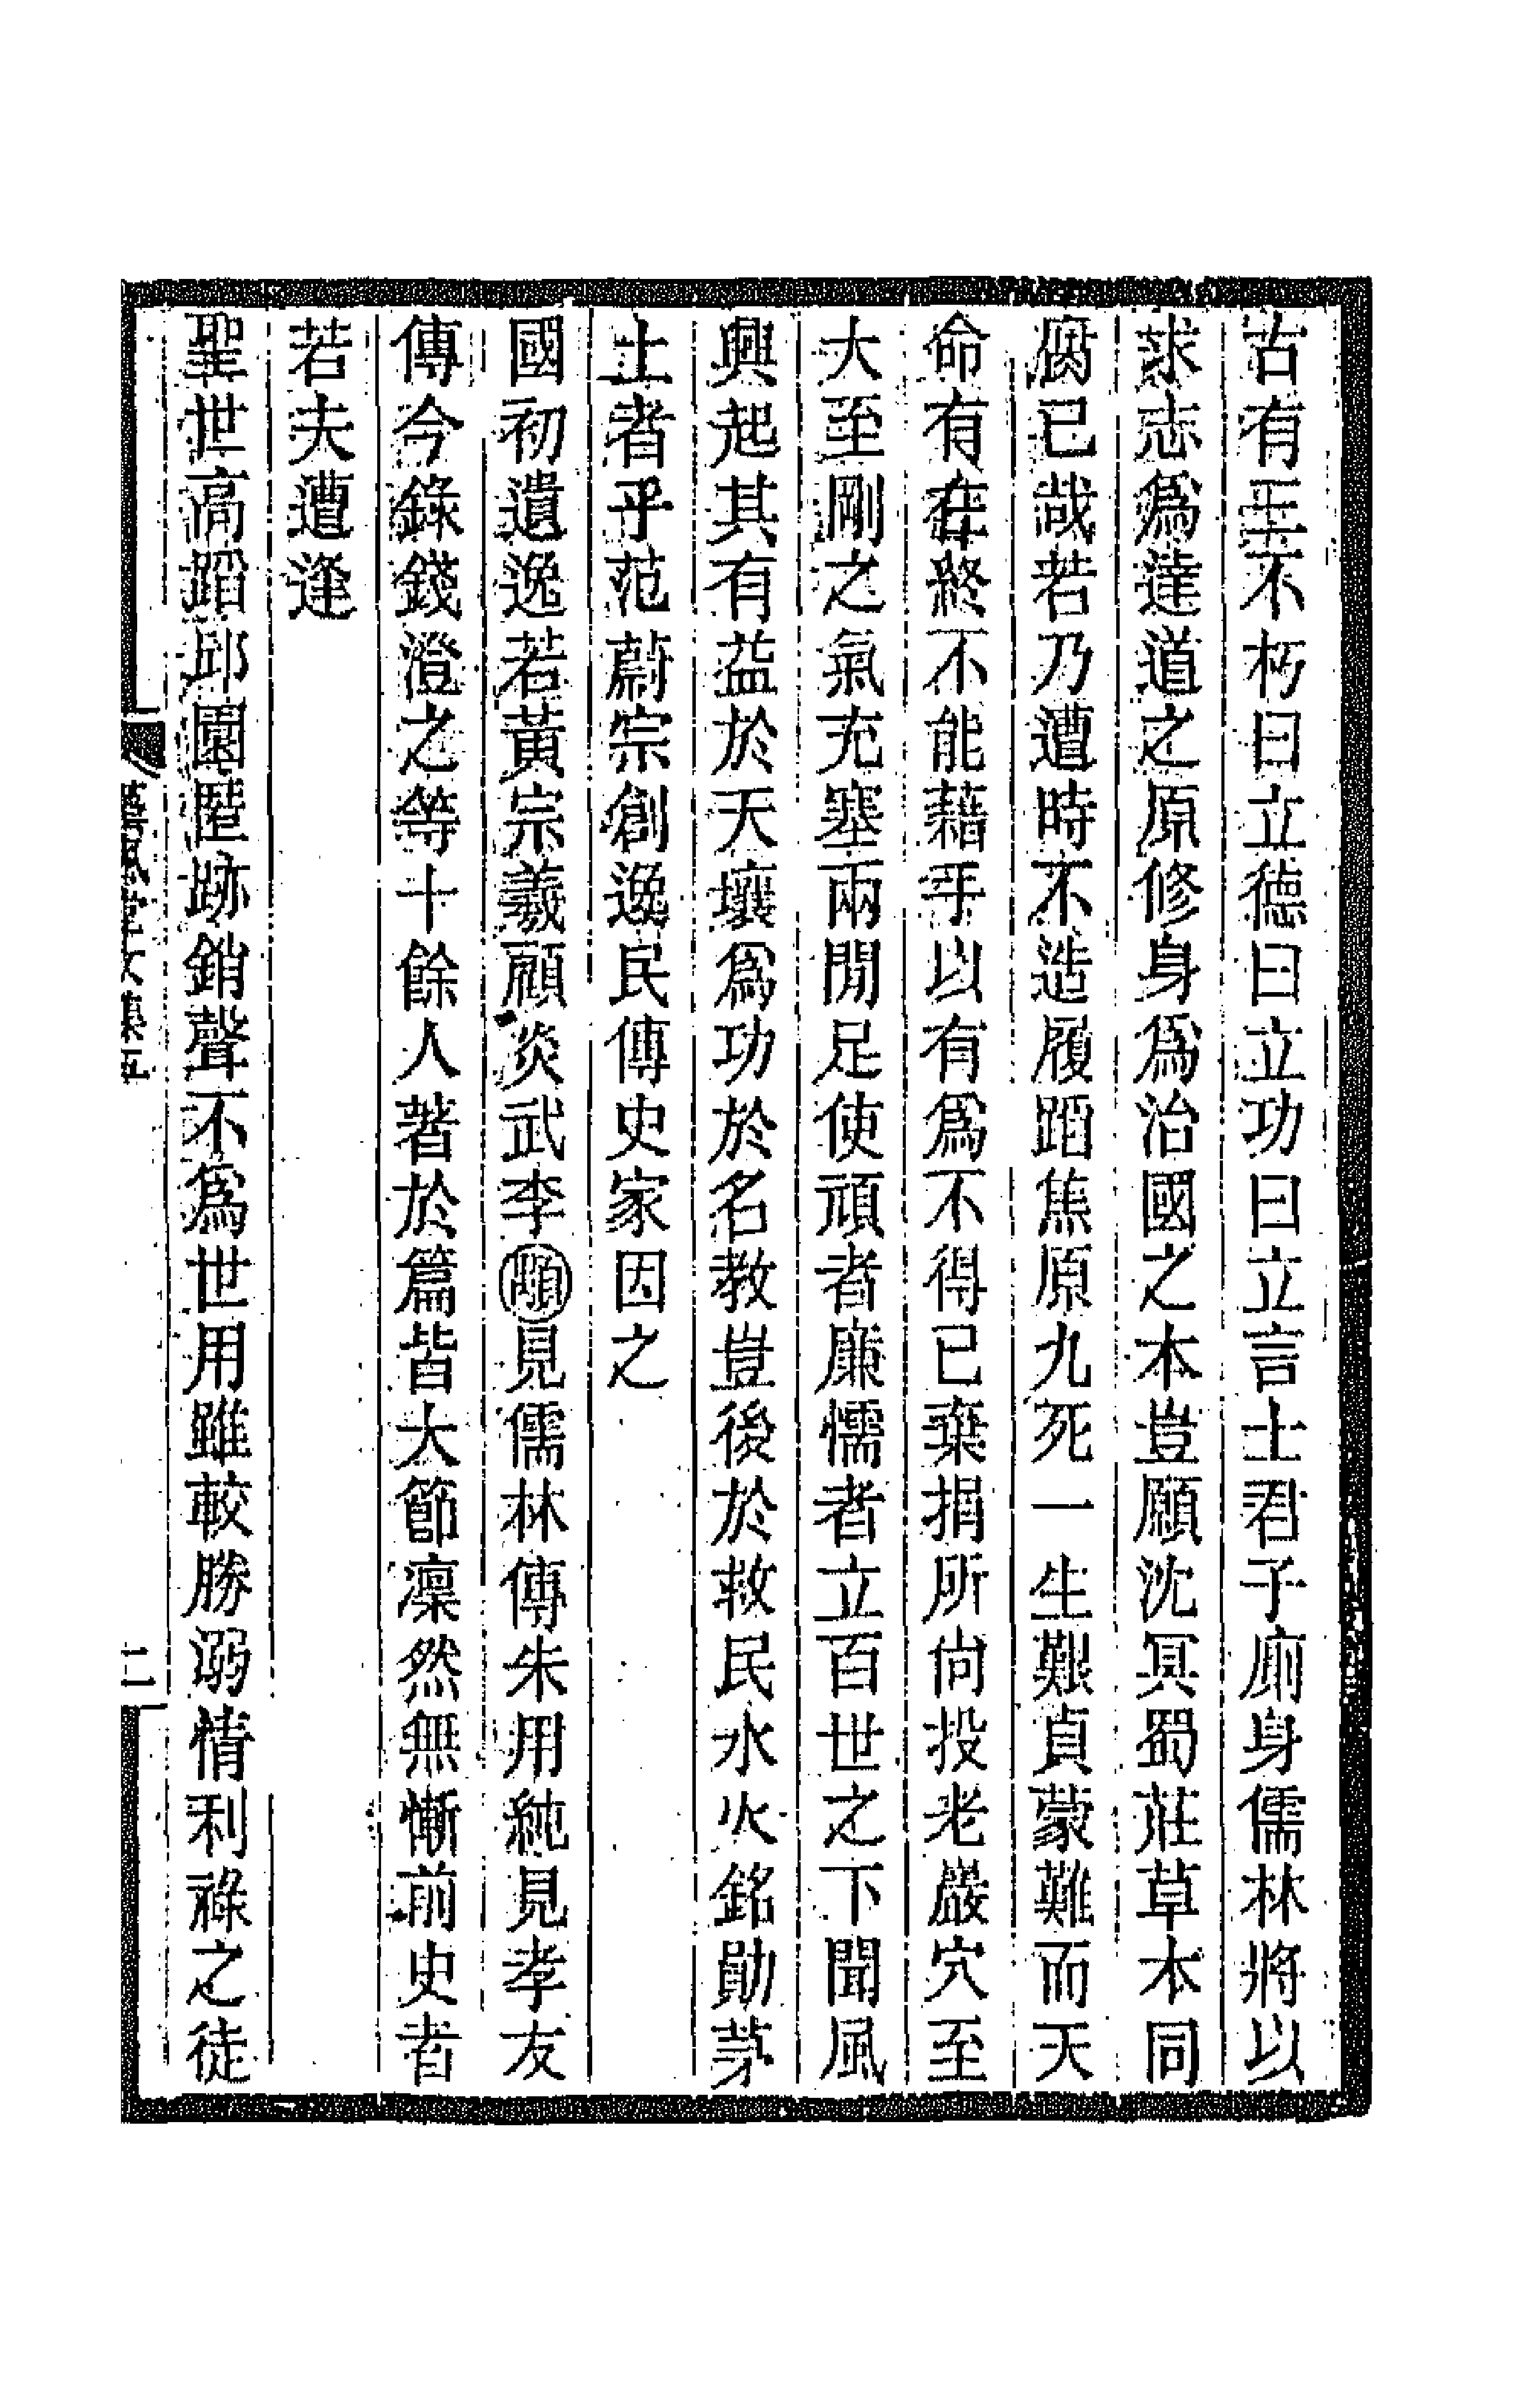 古有三不朽曰立德曰立功曰立言士君子廁身儒林將以
求志爲達道之原修身爲治國之本豈願沈冥蜀莊草木同
腐已哉若乃遭時不造履蹈焦原九死一生艱貞蒙難而天
命有在終不能藉手以有爲不得已棄捐所尙投老巖穴至
大至剛之氣充塞兩閒足使頑者廉懦者立百世之下聞風
興起其有益於天壤爲功於名教豈後於救民水火銘勛茅
土者乎范蔚宗創逸民傳史家因之
國初遺逸若黃宗羲顧炎武李顒見儒林傳朱用純見孝友
傳今錄錢澄之等十餘人著於篇皆大節凜然無慚前史者
若夫遭逢
聖世高蹈邱園匿跡銷聲不爲世用雖較勝溺情利祿之徒
風堂文集五
二